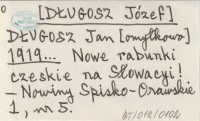 0
[DŁUGOSZ Józef]
DŁUGOSZ Jan [omyłkowo]
1919... Nowe rabunki
czeskie na Słowacyi!
– Nowiny Spisko-Orawskie
1, nr 5.